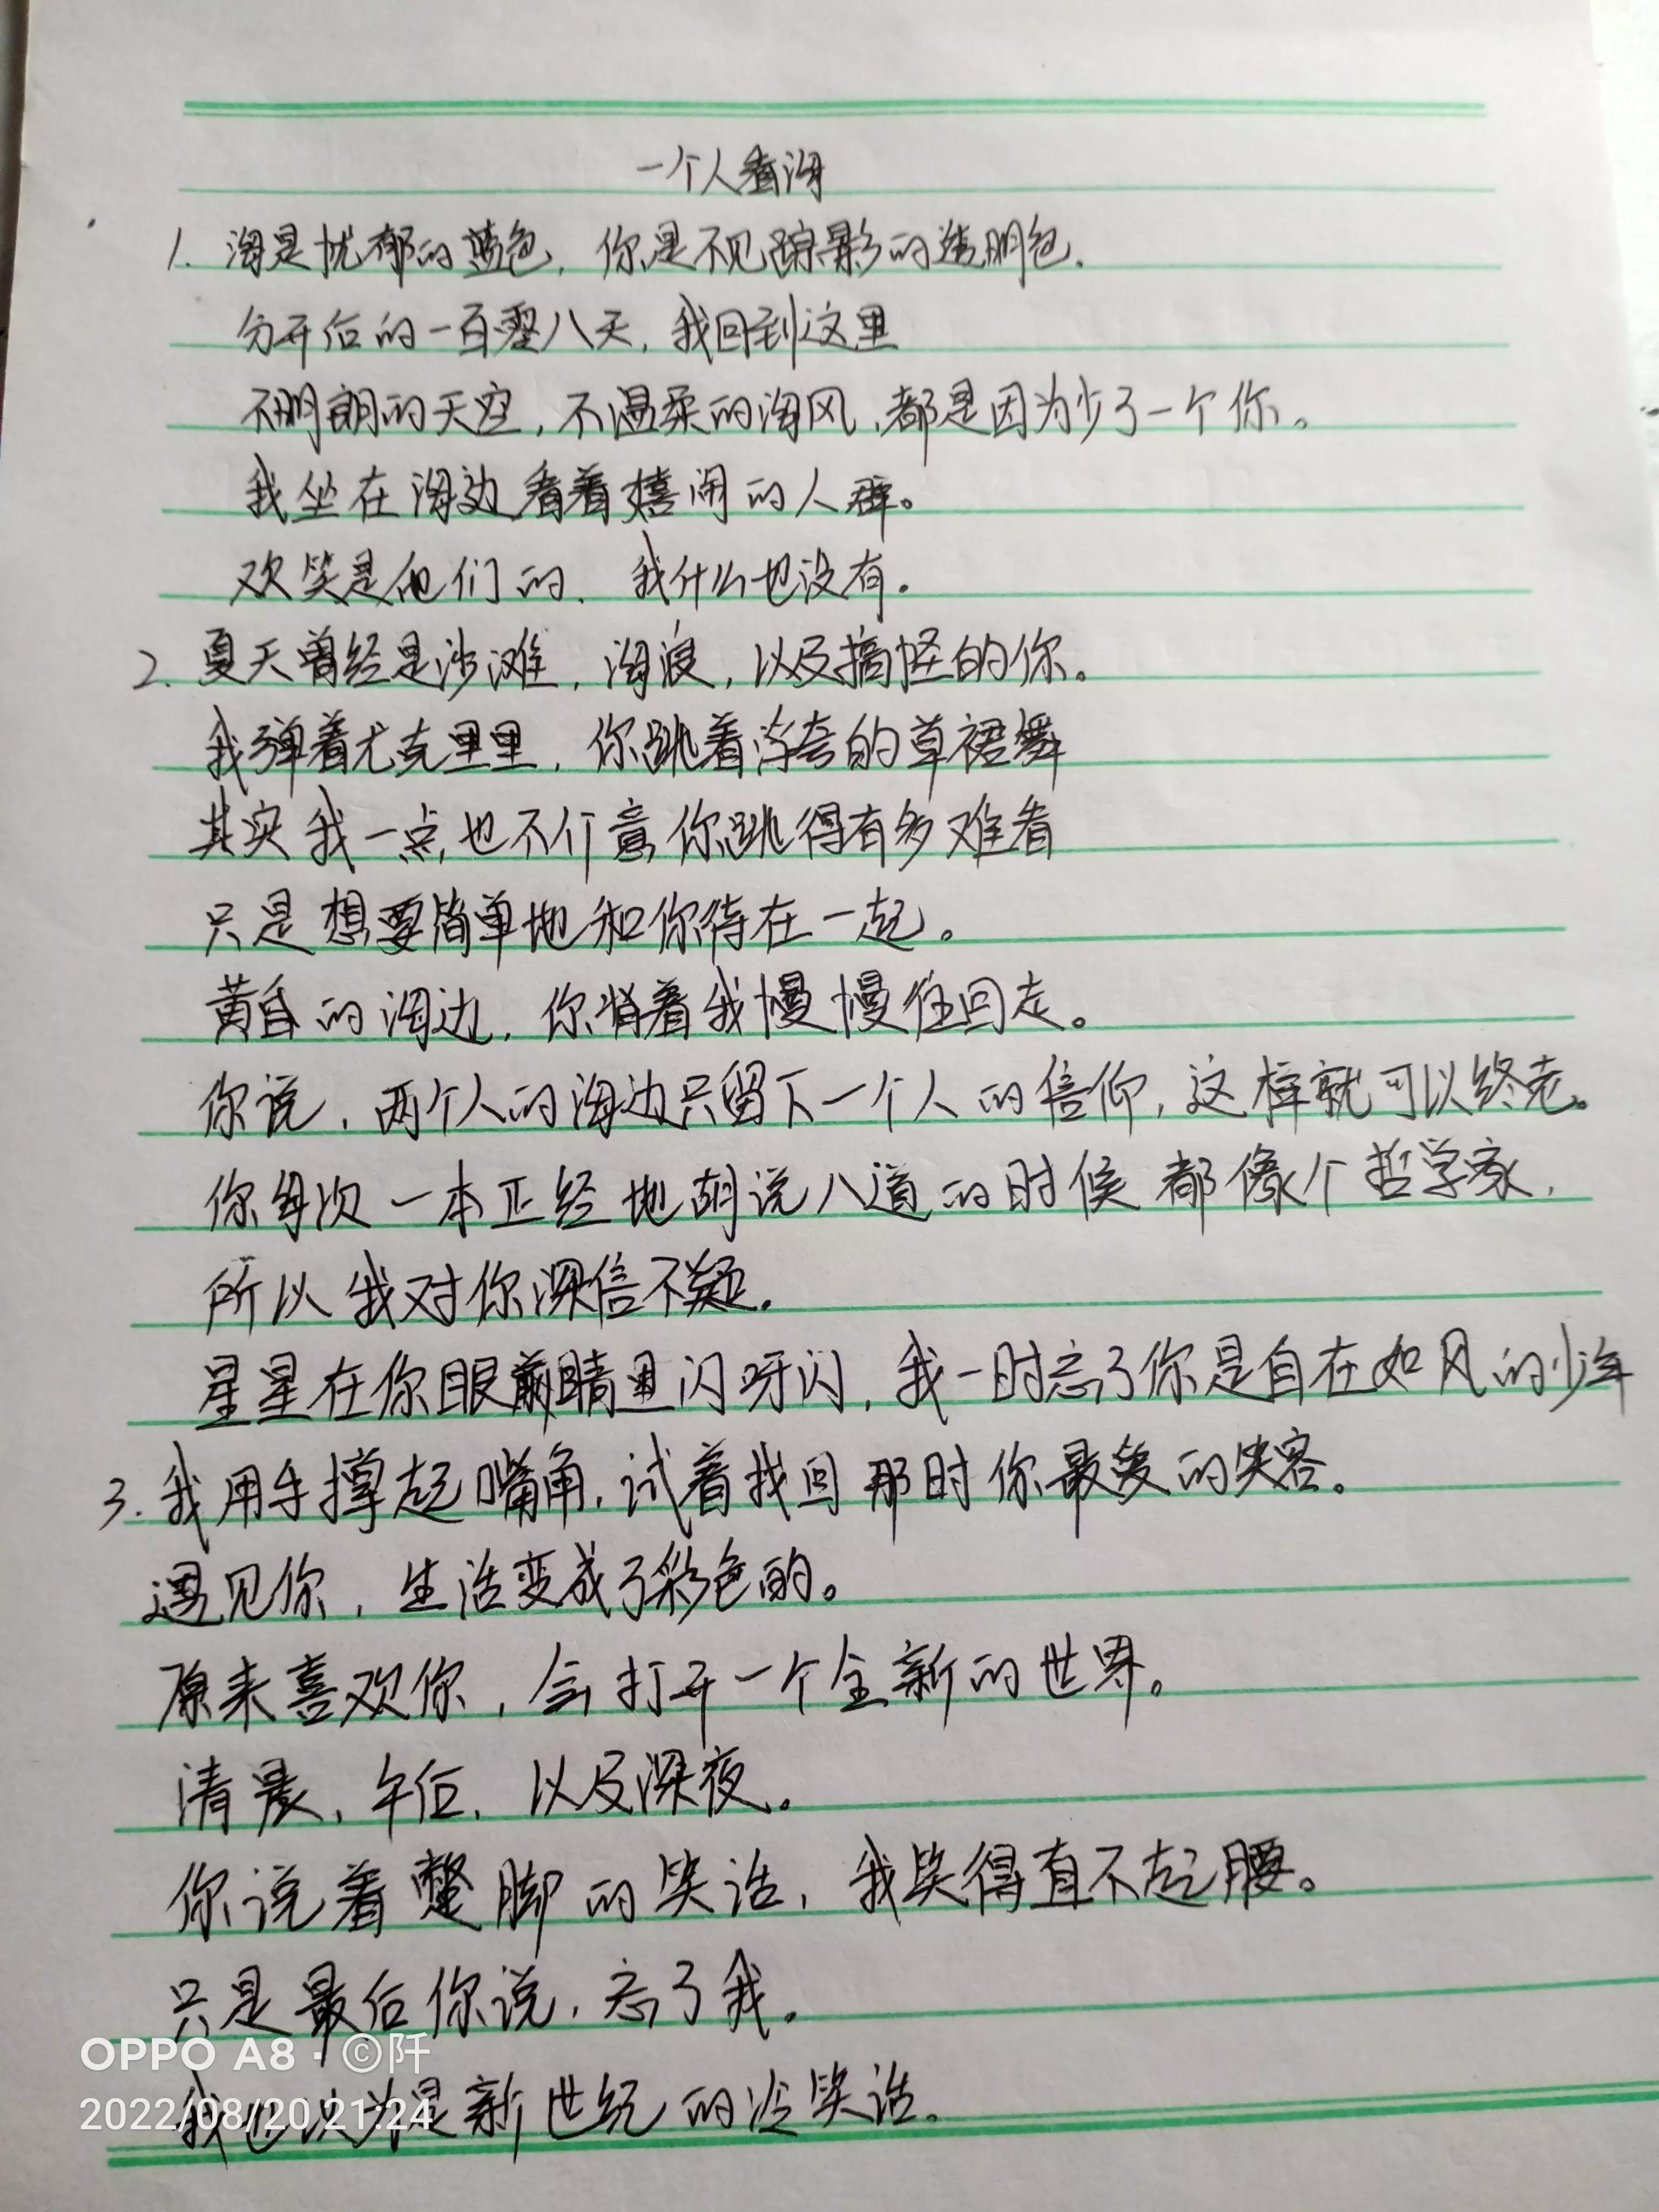 一个人看海
1. 海是忧郁的蓝色, 你是不见踪影的透明色.
分开后的一百零八天, 我回到这里
不明朗的天空, 不温柔的海风, 都是因为少了一个你。
我坐在海边看着嬉闹的人群。
欢笑是他们的, 我什么也没有.
2. 夏天曾经是沙滩, 海浪, 以及搞怪的你。
我弹着尤克里里, 你跳着浮夸的草裙舞
其实我一点也不介意你跳得有多难看
只是想要简单地和你待在一起。
黄昏的海边, 你背着我慢慢往回走。
你说, 两个人的海边只留下一个人的信仰, 这样就可以终老。
你每次一本正经地胡说八道的时候都像个哲学家,
所以我对你深信不疑.
星星在你眼睛里闪呀闪, 我一时忘了你是自在如风的少年
3. 我用手撑起嘴角, 试着找回那时你最爱的笑容。
遇见你, 生活变成了彩色的。
原来喜欢你, 会打开一个全新的世界。
清晨, 午后, 以及深夜。
你说着蹩脚的笑话, 我笑得直不起腰。
只是最后你说, 忘了我.
我也以为是新世纪的冷笑话.
OPPO A8 · ©阡
2022/08/20 21:24